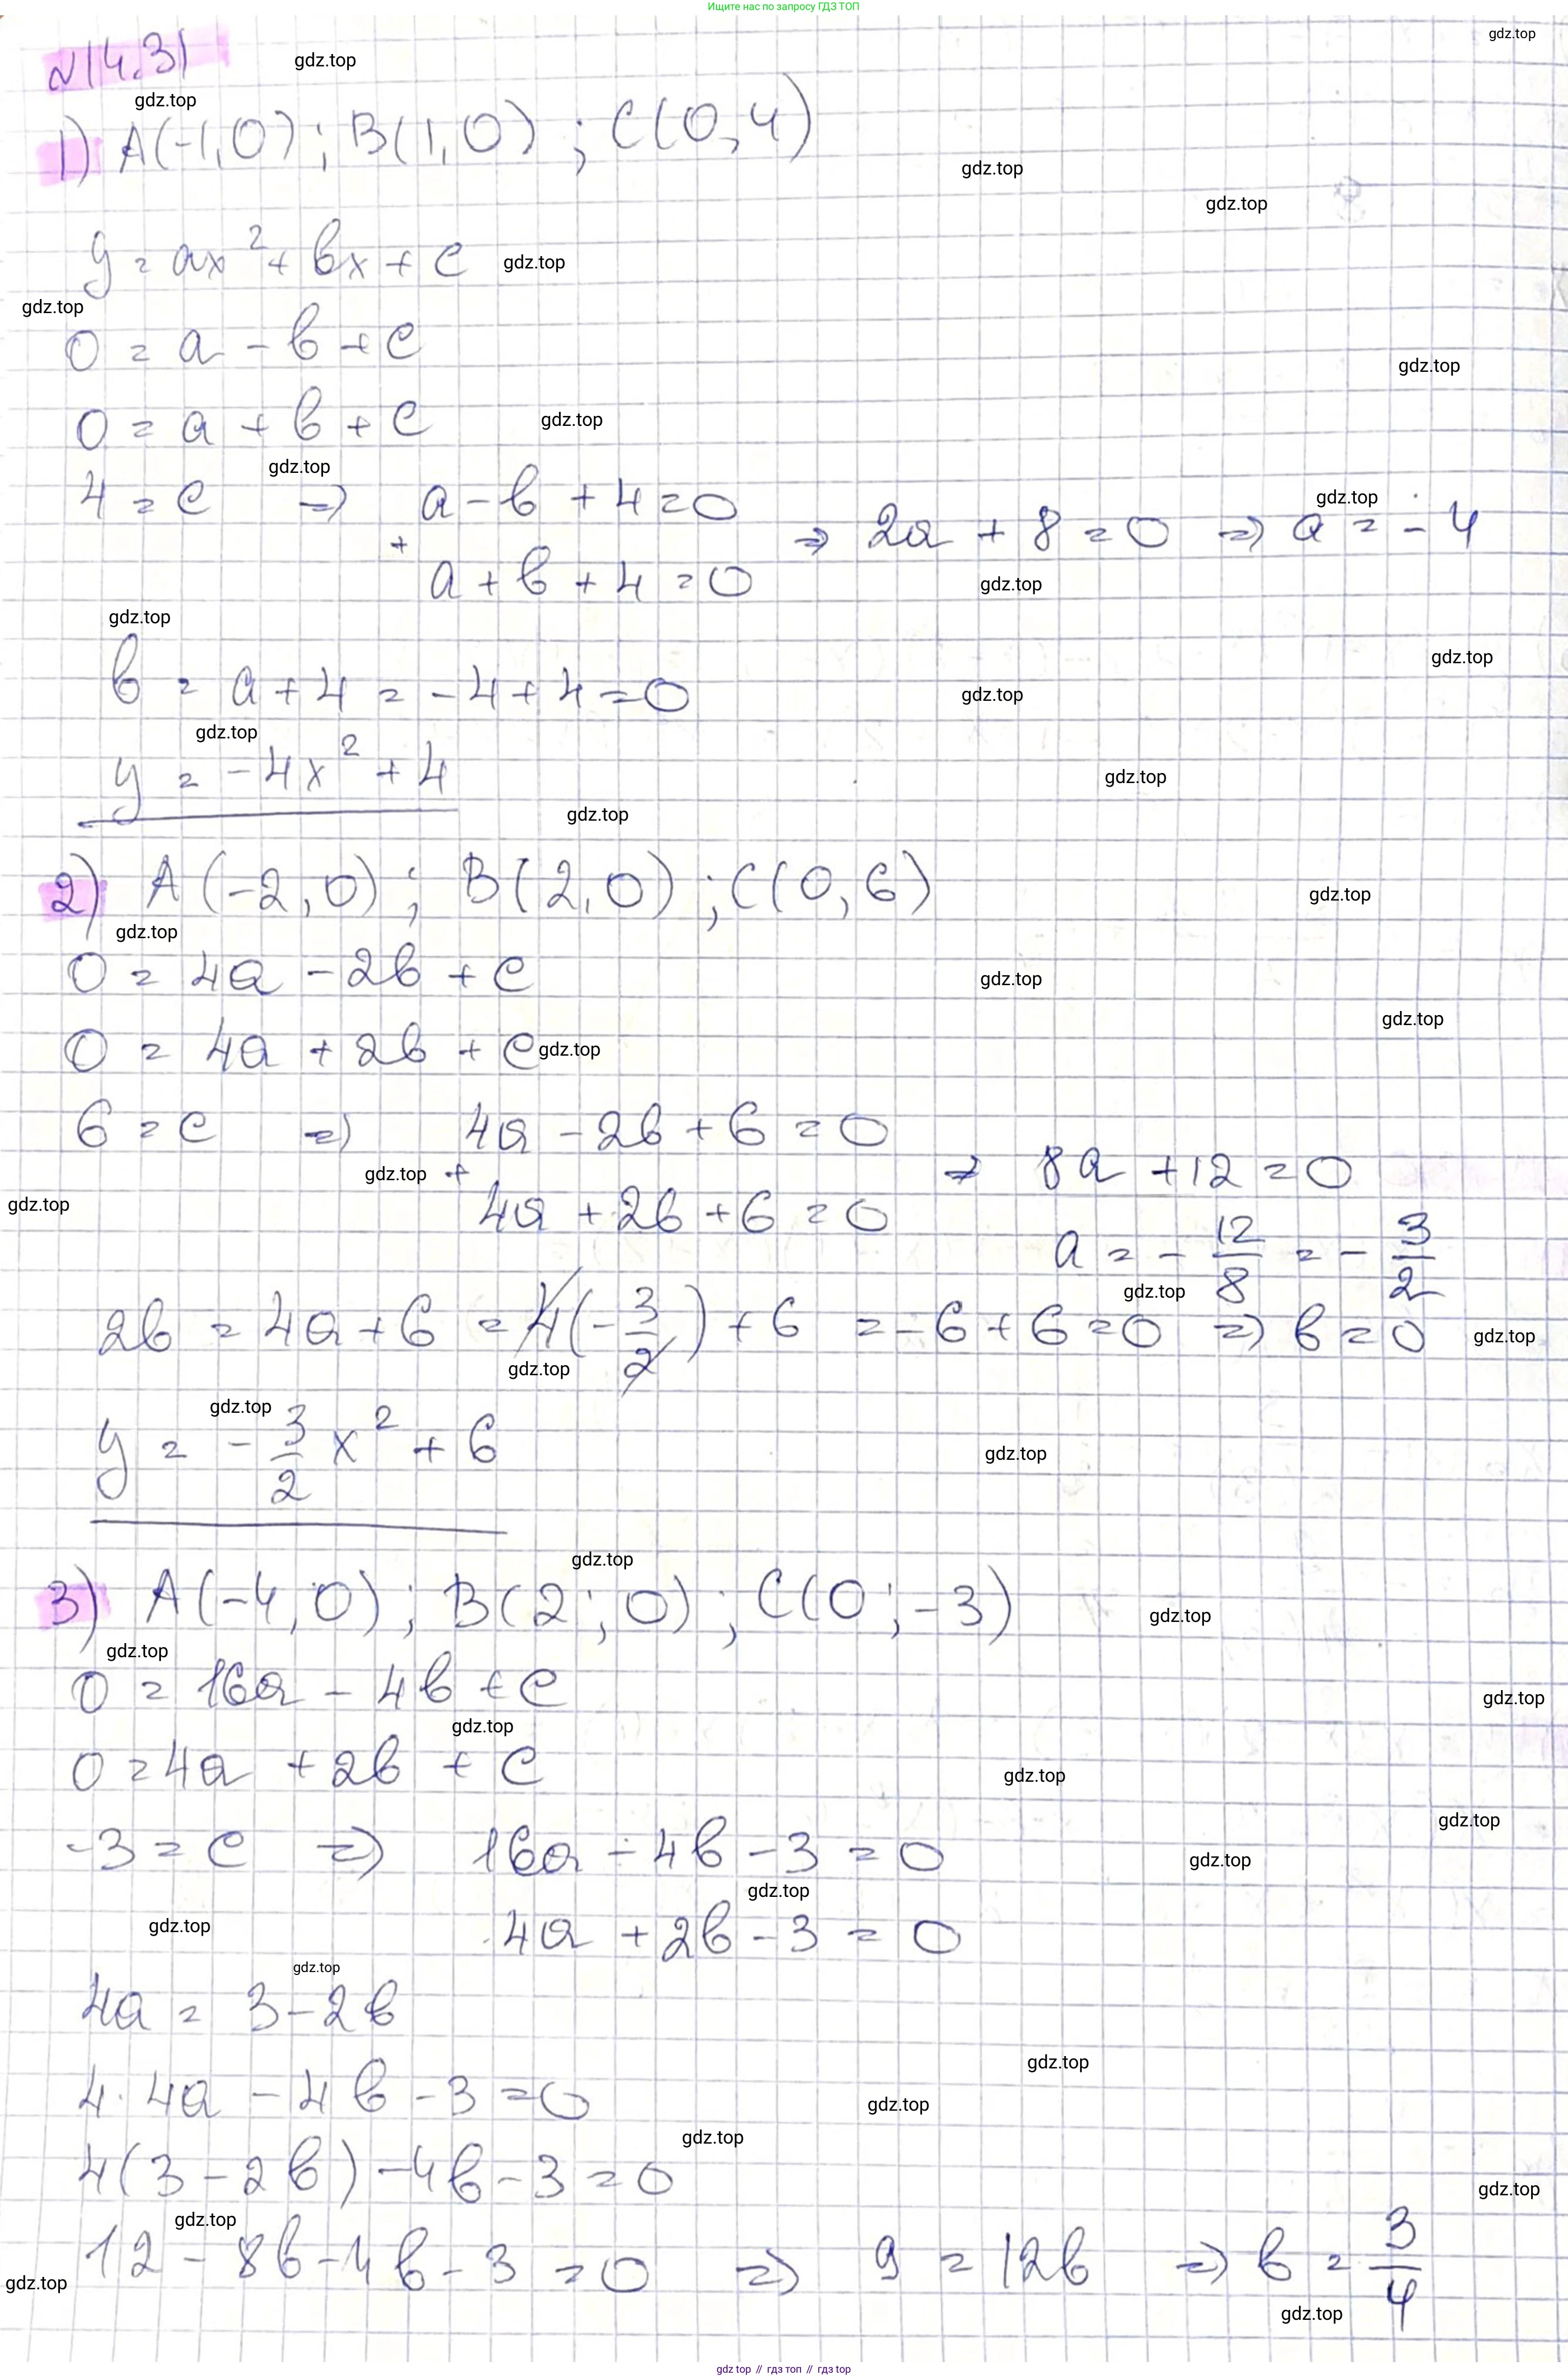 Ищите нас по запросу ГДЗ ТОП
gdz.top
№14.31
gdz.top
gdz.top
1) A(-1,0); B(1,0); C(0,4)
gdz.top
gdz.top
y = ax² + bx + c
gdz.top
gdz.top
0 = a - b + c
gdz.top
0 = a + b + c
gdz.top
gdz.top
4 = c ⇒ a - b + 4 = 0
gdz.top
+ ⇒ 2a + 8 = 0 ⇒ a = -4
a + b + 4 = 0
gdz.top
gdz.top
gdz.top
b = a + 4 = -4 + 4 = 0
gdz.top
gdz.top
y = -4x² + 4
gdz.top
gdz.top
2) A(-2,0); B(2,0); C(0,6)
gdz.top
gdz.top
0 = 4a - 2b + c
gdz.top
gdz.top
0 = 4a + 2b + c
gdz.top
6 = c ⇒ 4a - 2b + 6 = 0
gdz.top
+ ⇒ 8a + 12 = 0
gdz.top
4a + 2b + 6 = 0
a = - 12/8 = - 3/2
gdz.top
2b = 4a + 6 = 4(-3/2) + 6 = -6 + 6 = 0 ⇒ b = 0
gdz.top
gdz.top
gdz.top
y = - 3/2 x² + 6
gdz.top
gdz.top
3) A(-4;0); B(2;0); C(0;-3)
gdz.top
gdz.top
0 = 16a - 4b + c
gdz.top
gdz.top
0 = 4a + 2b + c
gdz.top
gdz.top
-3 = c ⇒ 16a - 4b - 3 = 0
gdz.top
gdz.top
gdz.top
4a + 2b - 3 = 0
gdz.top
4a = 3 - 2b
gdz.top
4·4a - 4b - 3 = 0
gdz.top
gdz.top
4(3 - 2b) - 4b - 3 = 0
gdz.top
gdz.top
12 - 8b - 4b - 3 = 0 ⇒ 9 = 12b ⇒ b = 3/4
gdz.top
gdz.top
gdz.top // гдз топ // гдз top